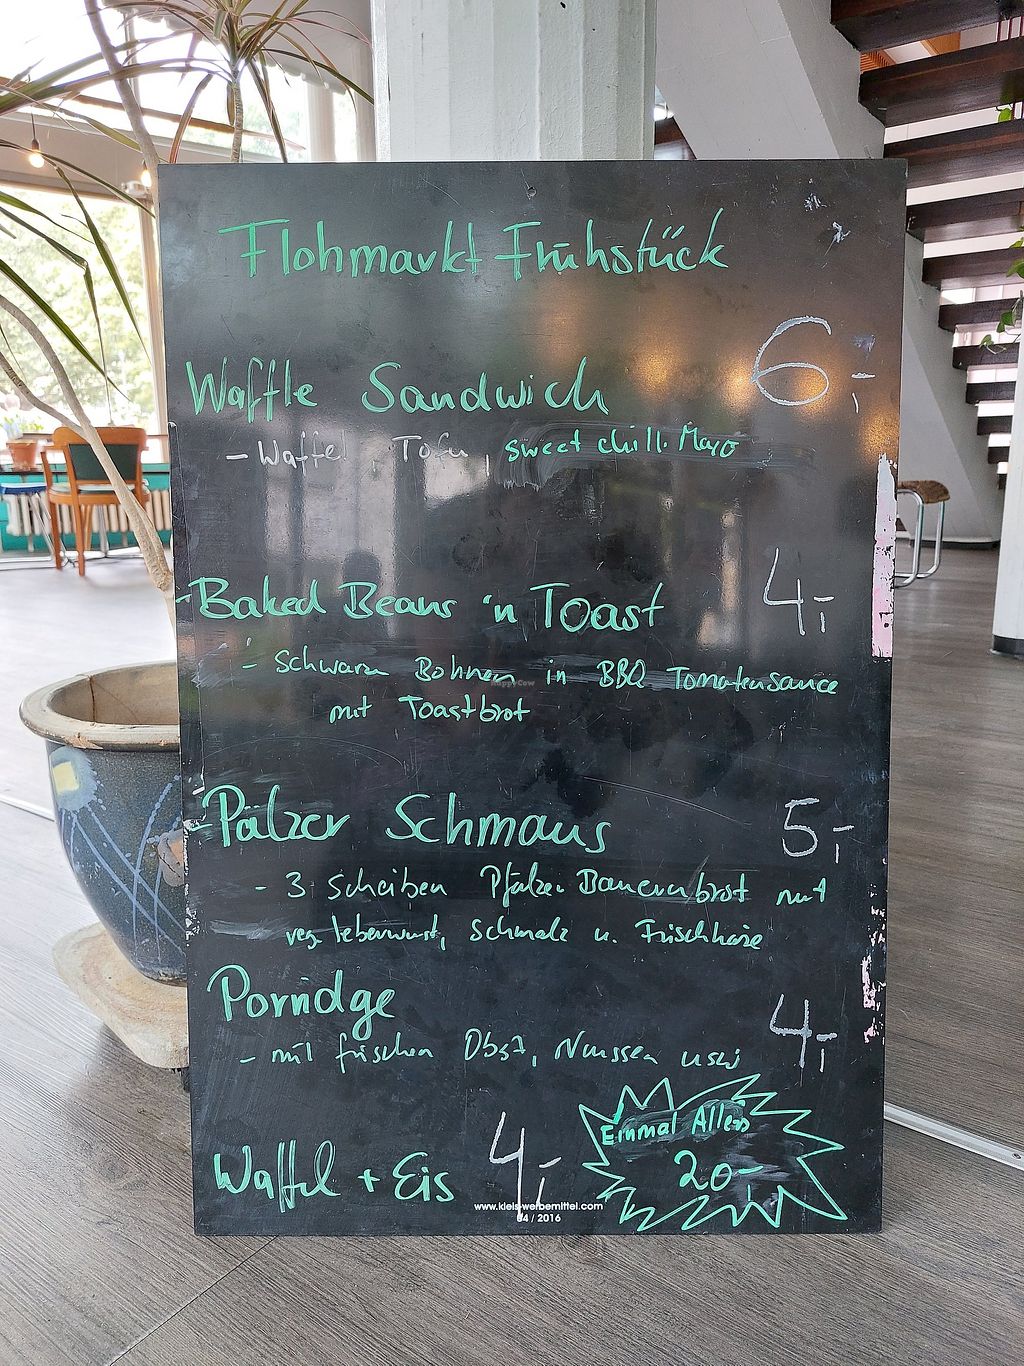 Flohmarkt Frühstück
Waffle Sandwich 6,-
- Waffel, Tofu, sweet chilli Mayo
- Baked Beans 'n Toast 4,-
- Schwarze Bohnen in BBQ Tomatensauce
mit Toastbrot
- Pälzer Schmaus 5,-
- 3 Scheiben Pfälzer Bauernbrot mit
veg. Leberwurst, Schmalz u. Frischkäse
Porridge 4,-
- mit frischen Obst, Nüssen usw
Einmal Alles
20,-
Waffel + Eis 4,-
www.kleis-werbemittel.com
04 / 2016
HappyCow